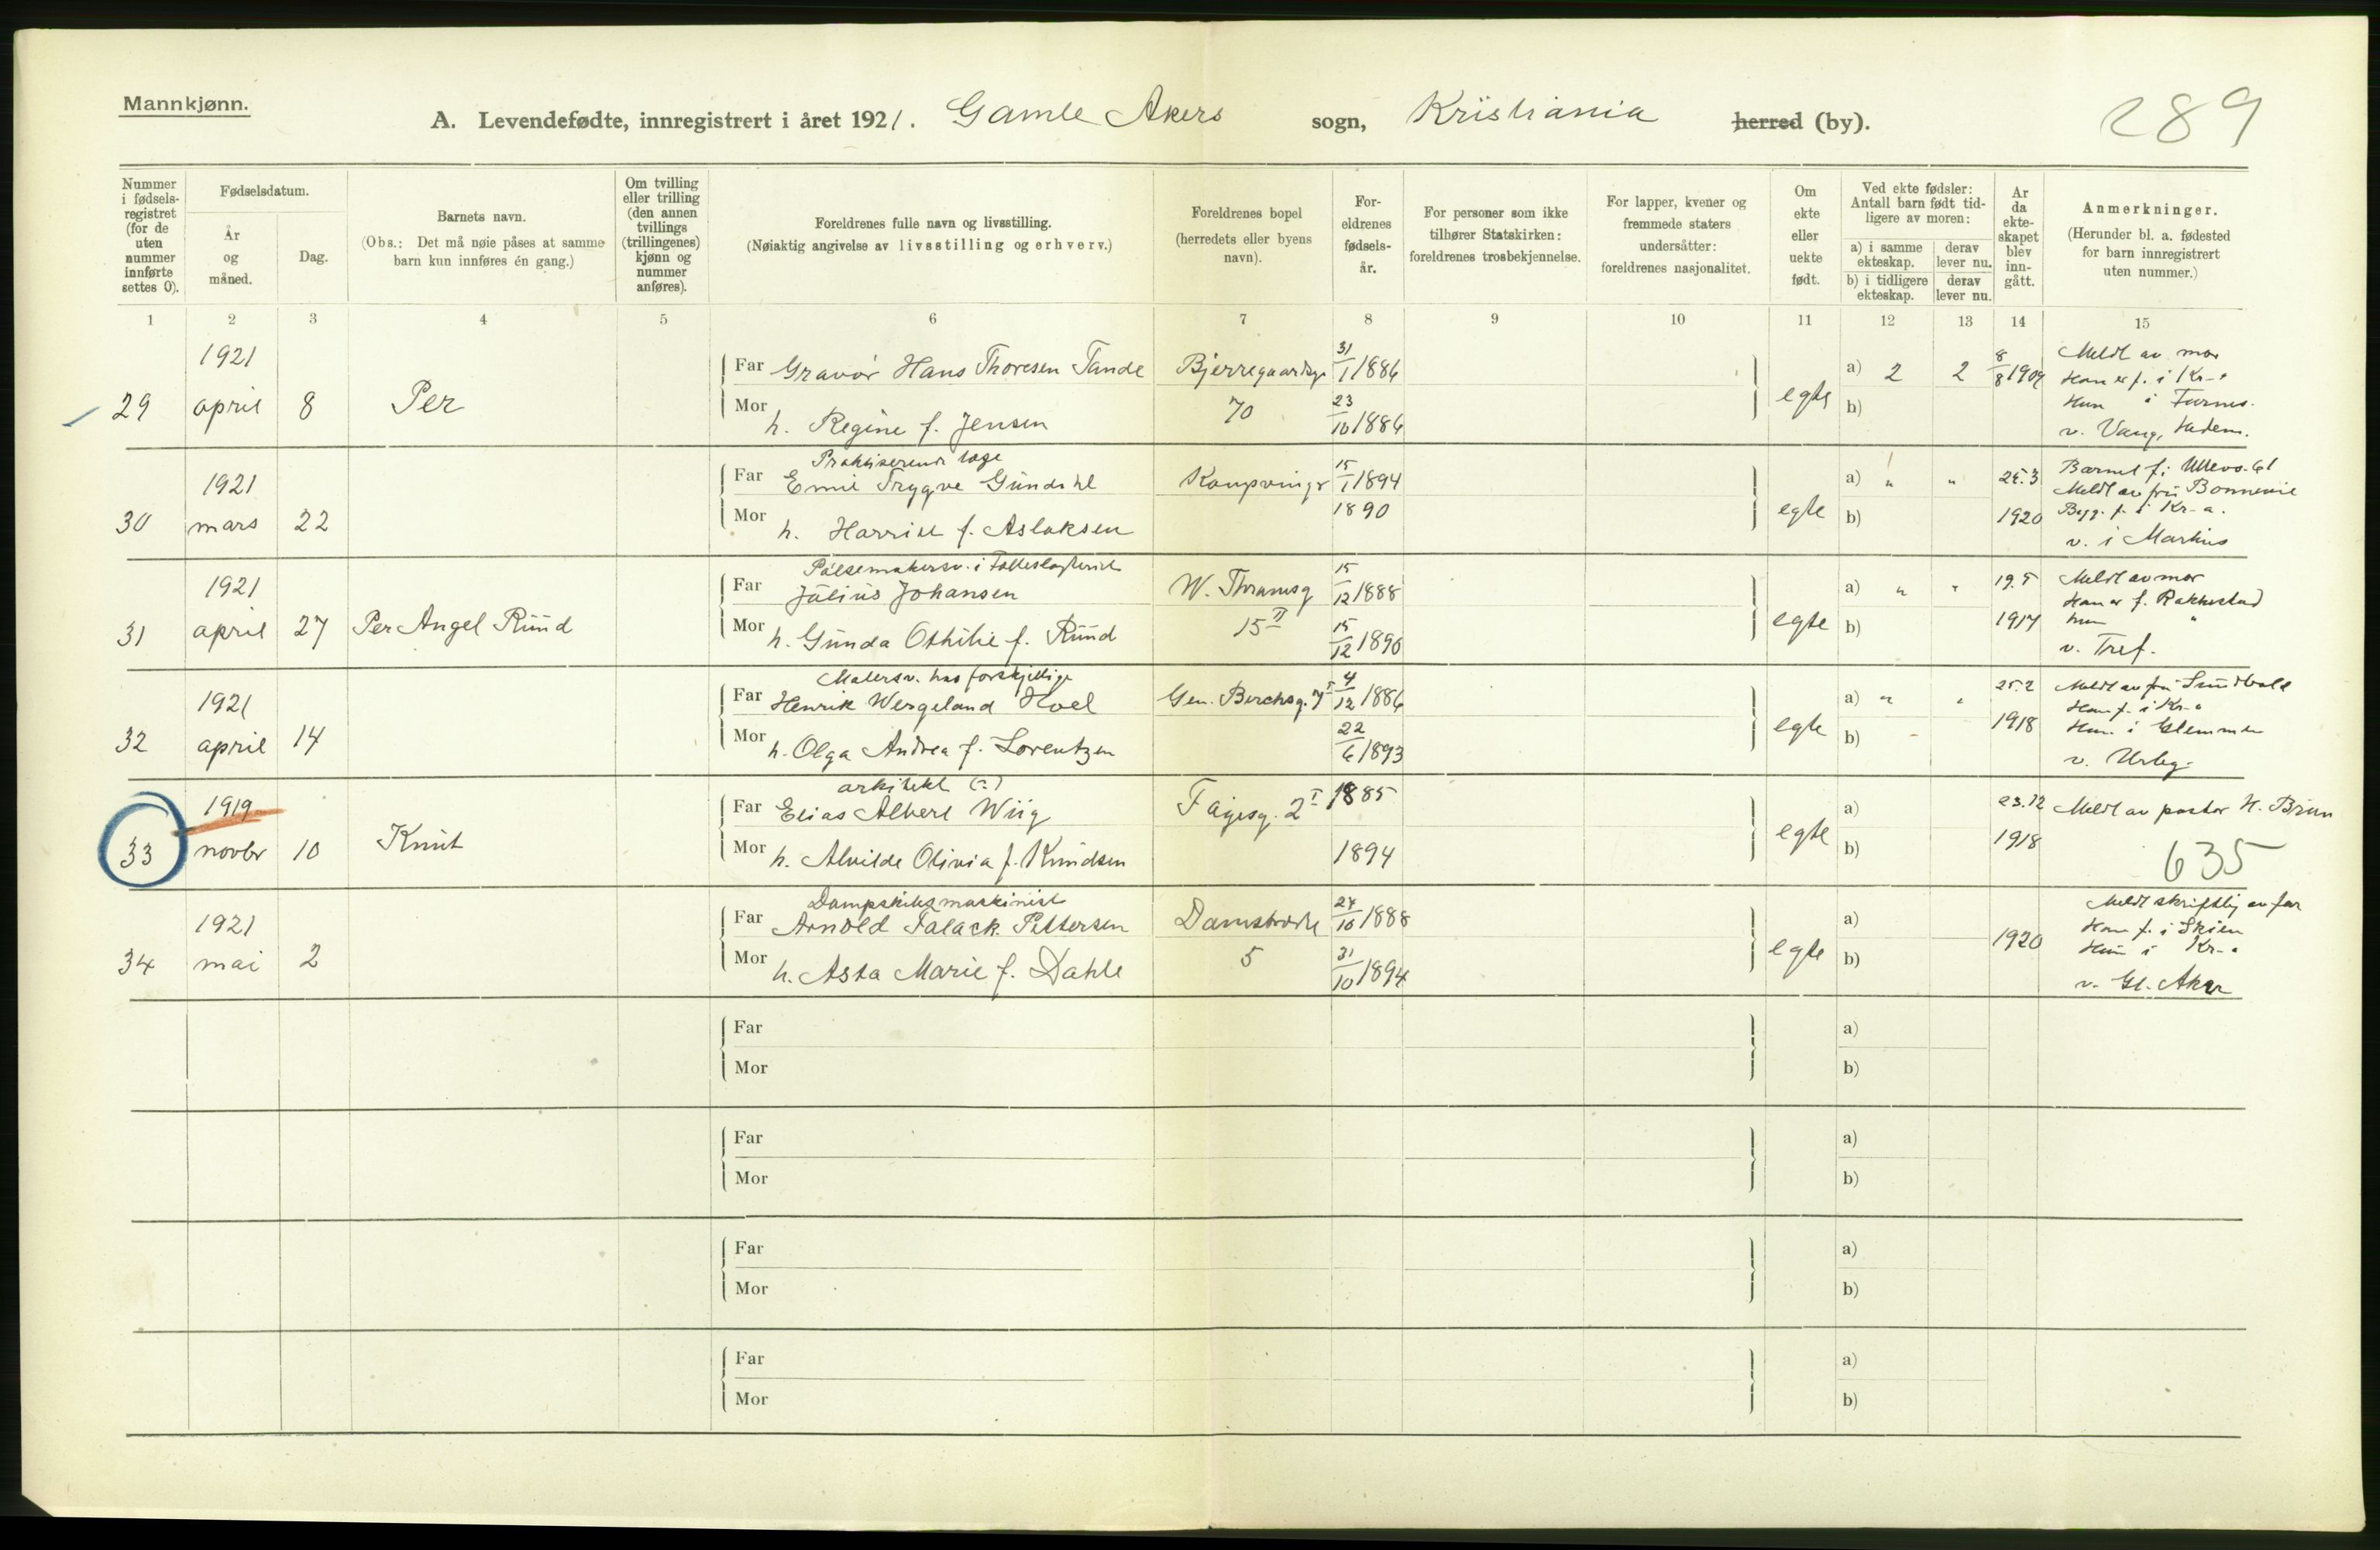 Mannkjønn.
A. Levendefødte, innregistrert i året 1921. Gamle Akers sogn, Kristiania herred (by).
289
Nummer i fødselsregistret (for de uten nummer innførte settes 0).
Fødselsdatum.
År og måned.
Dag.
Barnets navn.
(Obs.: Det må nøie påses at samme barn kun innføres én gang.)
Om tvilling eller trilling (den annen tvillings (trillingenes) kjønn og nummer anføres).
Foreldrenes fulle navn og livsstilling.
(Nøiaktig angivelse av livsstilling og erhverv.)
Foreldrenes bopel (herredets eller byens navn).
Foreldrenes fødselsår.
For personer som ikke tilhører Statskirken: foreldrenes trosbekjennelse.
For lapper, kvener og fremmede staters undersåtter: foreldrenes nasjonalitet.
Om ekte eller uekte født.
Ved ekte fødsler: Antall barn født tidligere av moren:
a) i samme ekteskap.
derav lever nu.
b) i tidligere ekteskap.
derav lever nu.
Ar da ekteskapet blev inngått.
Anmerkninger.
(Herunder bl. a. fødested for barn innregistrert uten nummer.)
1 2 3 4 5 6 7 8 9 10 11 12 13 14 15
29 1921 april 8 Per
Far Gravør Hans Thoresen Tande Bjerregaardsg. 31/1 1886
Mor h. Regine f. Jensen 70 23/10 1886
egte a) 2 2 8/8 1909
b)
Meldt av mor
Han er f. i Kr-a
Hun i Furnes.
v. Vang, Hedem.
30 1921 mars 22
Praktiserende læge
Far Emil Trygve Gundahl Kongsvinger 15/1 1894
Mor h. Harriet f. Aslaksen 1890
egte a) " " 25.3
b) 1920
Barnet f. i Ullevo.
Meldt av fru Bonnevie
Begge f. i Kr-a.
v. i Markus
31 1921 april 27 Per Angel Ruud
Pølsemakersv. i Fælleslagteriet
Far Julius Johansen W. Thranesg 15/12 1888
Mor h. Gunda Othilie f. Ruud 15 II 15/12 1890
egte a) " " 19.5
b) 1917
Meldt av mor
Han er f. Rakkestad
hun "
v. Tref.
32 1921 april 14
Malersv. hos forskjellige
Far Henrik Wergeland Hoel Gen. Birchsg. 7 I 4/12 1886
Mor h. Olga Andrea f. Lorentzen 22/6 1893
egte a) " " 25.2
b) - 1918
Meldt av fru Sundbole
Han f. i Kr-a
Hun i Glemmen
v. Urbg.
33 1919 novbr 10 Knut
arkitekt (?)
Far Elias Albert Wiig Fayesg. 2 I 1885
Mor h. Alvilde Olivia f. Knudsen 1894
egte a) 23.12
b) 1918
Meldt av pastor H. Brun
635
34 1921 mai 2
Dampskibsmaskinist
Far Arnold Falack Pettersen Damstredet 24/10 1888
Mor h. Asta Marie f. Dahle 5 31/10 1894
egte a)
b) 1920
Meldt skriftlig av far
Han f. i Skien
Hun i Kr-a
v. Gl. Aker
Far a)
Mor b)
Far a)
Mor b)
Far a)
Mor b)
Far a)
Mor b)